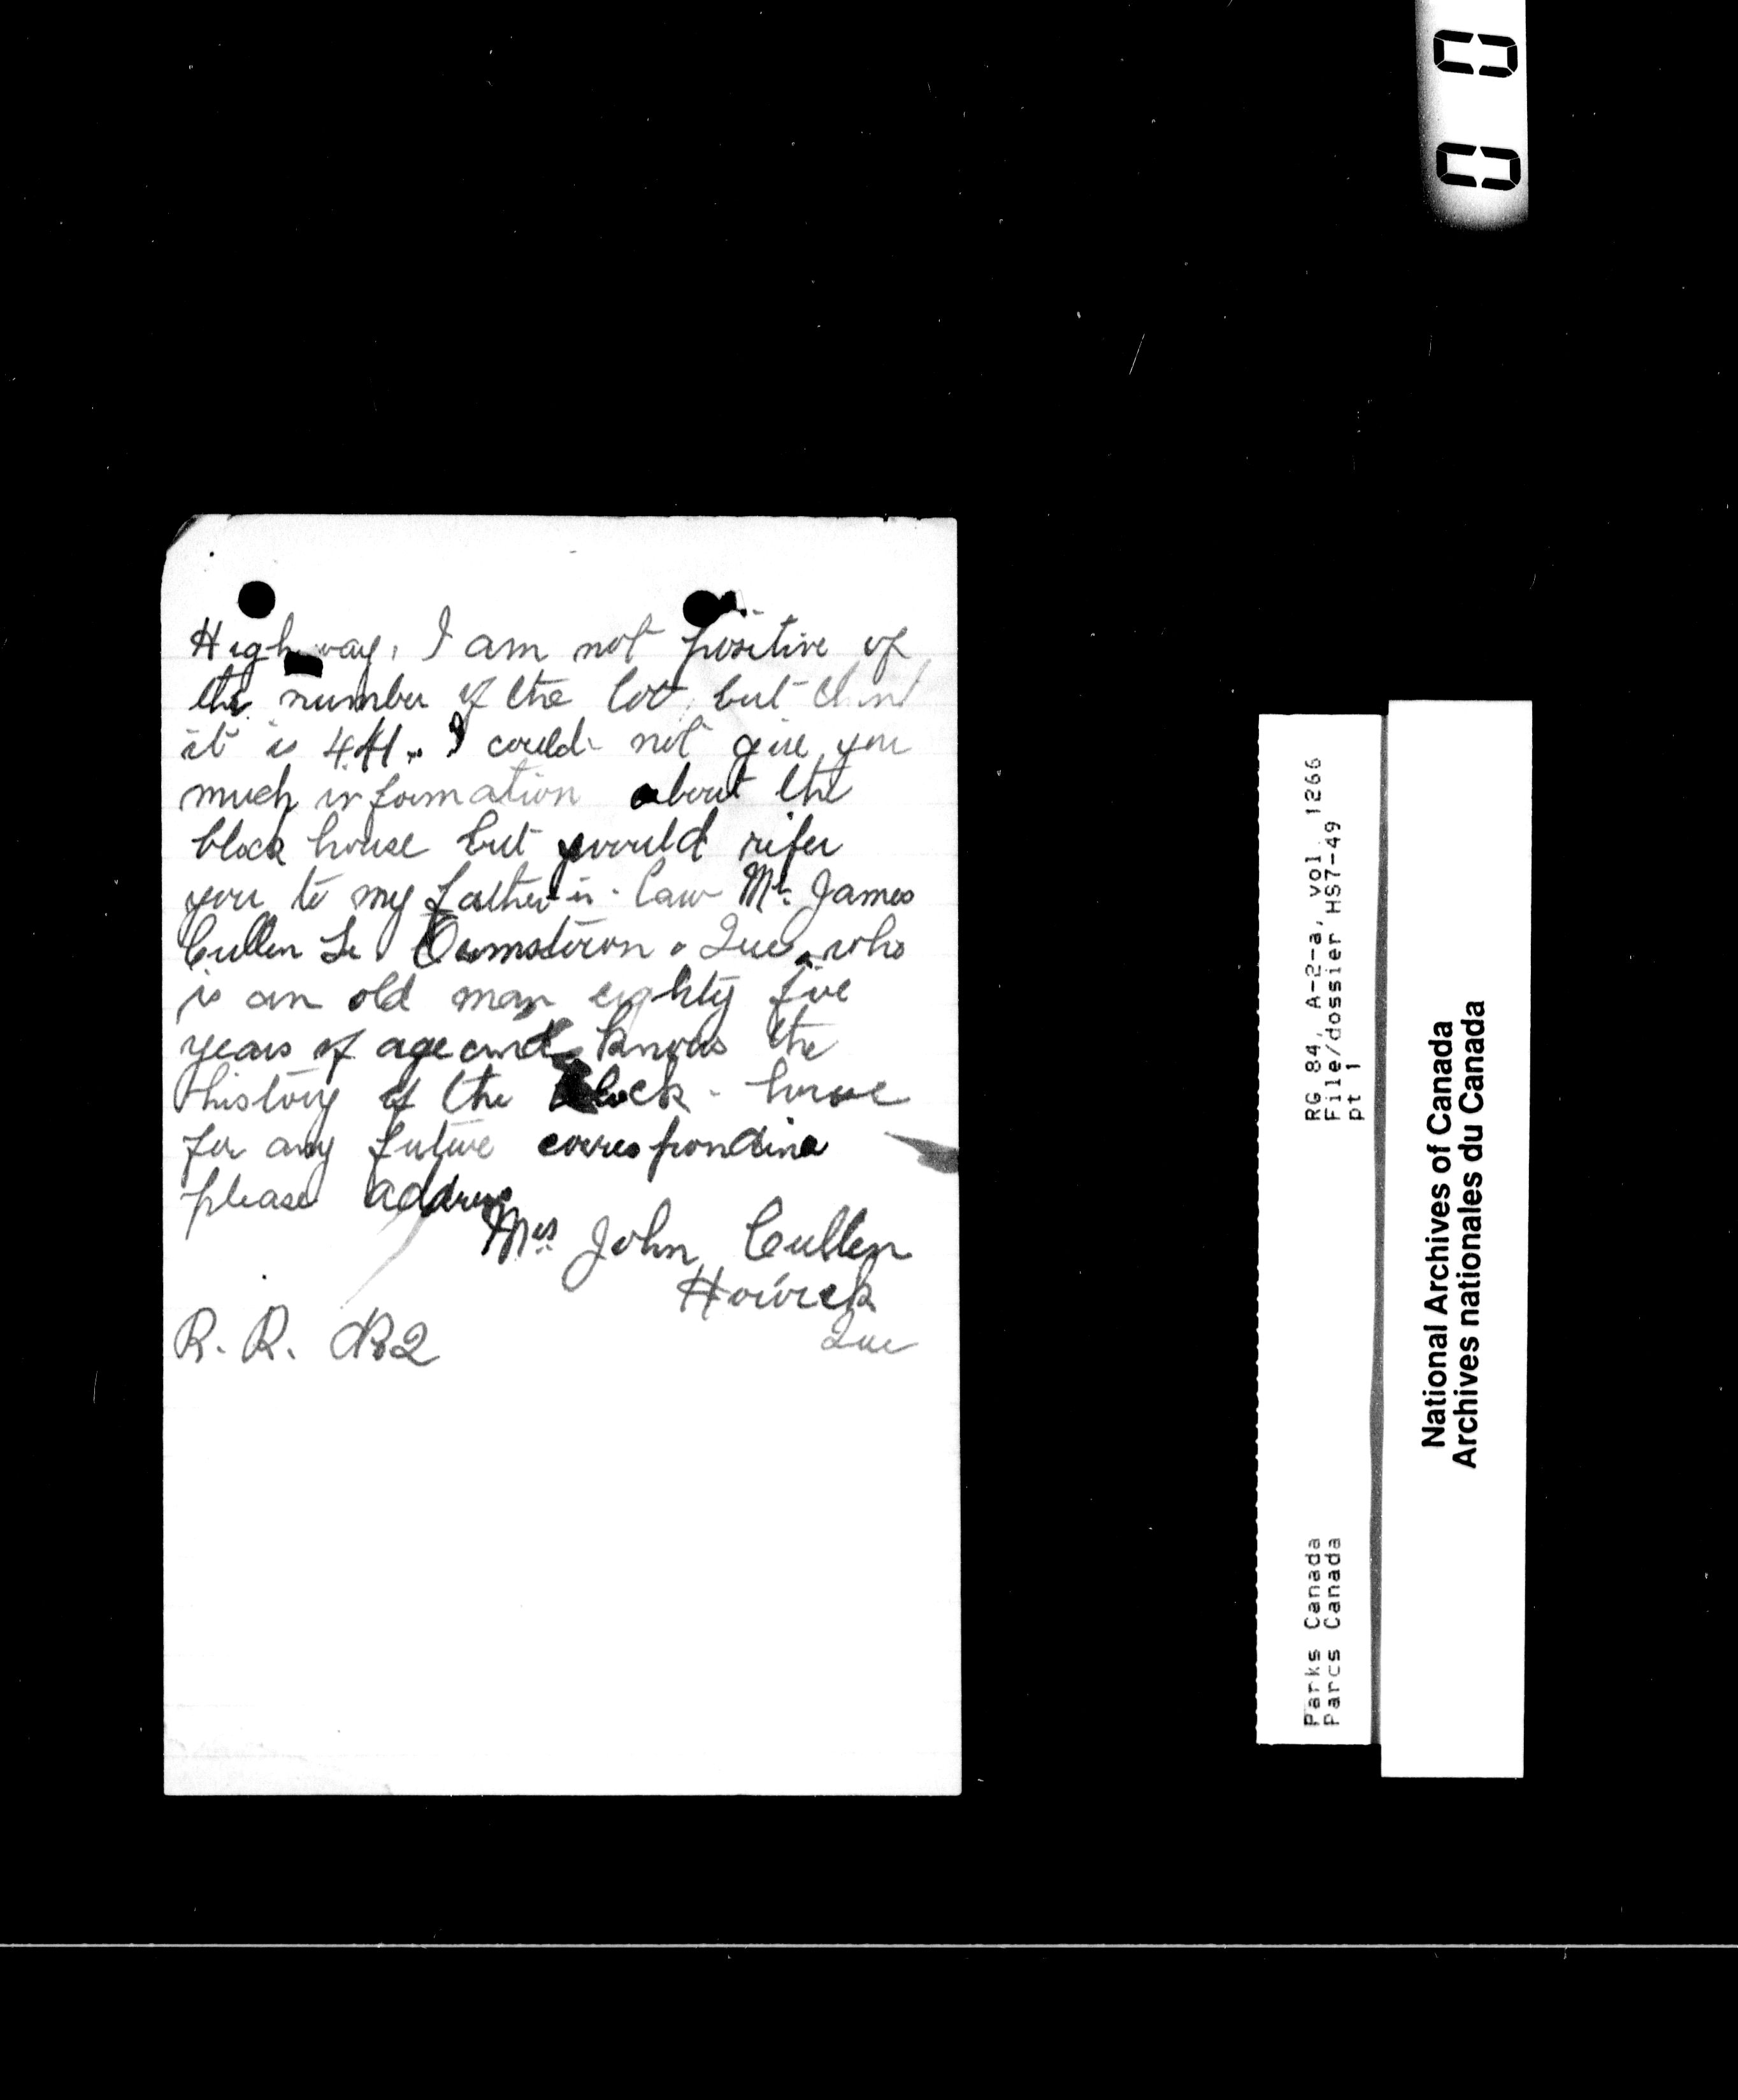 High way, I am not positive of
the number of the lot, but
it is I could not give you
much information about the
block house but would rifer
you to my father-in-law Mr. James
Cullen Ormstown Que. who
is an old man eighty five
years of age and knows the
history of the block-house
for any future
please address
Mrs. John Cullen
Howick
Que
R. R. 2
0 0
RG 84, A-2-a, vol. 1266
File/dossier HS7-49
pt 1
Parks Canada
Parcs Canada
National Archives of Canada
Archives nationales du Canada